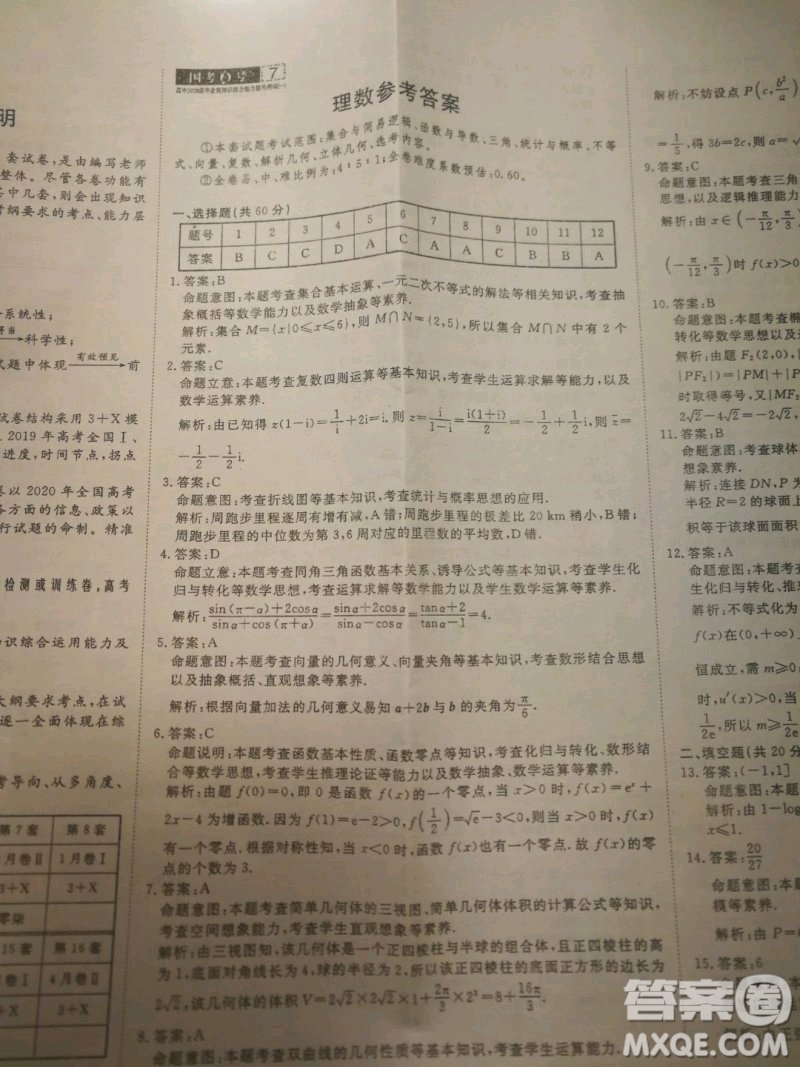 明
套试卷，是由编写老师
整体。尽管各卷功能有
其中几套，则会出现知识
考纲要求的考点、能力层
系统性；
科学性；
试题中体现 有效预见 前
试卷结构采用3＋X模
2019年高考全国Ⅰ、
进度，时间节点，拐点
卷以2020年全国高考
各方面的信息、政策以
行试题的命制。精准
检测或训练卷，高考
知识综合运用能力及
大纲要求考点，在试
逐一全面体现在综
考导向、从多角度、
第7套 第8套
月卷Ⅱ 1月卷Ⅰ
3＋X 3＋X
零柒
15套 第16套
月卷Ⅰ 4月卷Ⅱ
3＋X 3＋X
国考1号 7
理数参考答案
①本套试题考试范围：集合与简易逻辑、函数与导数、三角、统计与概率、不等
式、向量、复数、解析几何、立体几何、选考内容。
②全卷易、中、难比例为：4∶5∶1；全卷难度系数预估：0.60。
一、选择题(共60分)
题号 1 2 3 4 5 6 7 8 9 10 11 12
答案 B C C D A C A A C B B A
1．答案：B
命题意图：本题考查集合基本运算，一元二次不等式的解法等相关知识，考查抽
象概括等数学能力以及数学抽象等素养．
解析：集合M＝{x|0≤x≤6}，则M∩N＝{2,5}，所以集合M∩N中有2个
元素．
2．答案：C
命题立意：本题考查复数四则运算等基本知识，考查学生运算求解等能力，以及
数学运算素养．
解析：由已知得z(1－i)＝1/i＋2i＝i．则z＝i/(1－i)＝i(1＋i)/2＝－1/2＋1/2i，则z̄＝
－1/2－1/2i．
3．答案：C
命题意图：考查折线图等基本知识，考查统计与概率思想的应用．
解析：周跑步里程逐周有增有减，A错；周跑步里程的极差比20 km稍小，B错；
周跑步里程的中位数为第3，6周对应的里程数的平均数，D错．
4．答案：D
命题立意：本题考查同角三角函数基本关系、诱导公式等基本知识，考查学生化
归与转化等数学思想，考查运算求解等数学能力以及学生数学运算等素养．
解析：(sin(π－α)＋2cosα)/(sinα＋cos(π＋α))＝(sinα＋2cosα)/(sinα－cosα)＝(tanα＋2)/(tanα－1)＝4．
5．答案：A
命题意图：本题考查向量的几何意义、向量夹角等基本知识，考查数形结合思想
以及抽象概括、直观想象等素养．
解析：根据向量加法的几何意义易知a＋2b与b的夹角为π/6．
6．答案：C
命题说明：本题考查函数基本性质、函数零点等知识，考查化归与转化、数形结
合等数学思想，考查学生推理论证等能力以及数学抽象、数学运算等素养．
解析：由题f(0)＝0，即0是函数f(x)的一个零点，当x＞0时，f(x)＝eˣ＋
2x－4为增函数．因为f(1)＝e－2＞0，f(1/2)＝√e－3＜0，则当x＞0时，f(x)
有一个零点．根据对称性知，当x＜0时，函数f(x)也有一个零点．故f(x)的零
点的个数为3．
7．答案：A
命题意图：本题考查简单几何体的三视图、简单几何体体积的计算公式等知识，
考查空间想象能力，考查学生直观想象等素养．
解析：由三视图知，该几何体是一个正四棱柱与半球的组合体，且正四棱柱的高
为1，底面对角线长为4，球的半径为2，所以该正四棱柱的底面正方形的边长为
2√2，该几何体的体积V＝2√2×2√2×1＋2π/3×2³＝8＋16π/3．
8．答案：A
命题意图：本题考查双曲线的几何性质等基本知识，考查学生运算能力．
解析：不妨设点P(c，b²/a)
＝1/5，得3b＝2c，则a＝
9．答案：C
命题意图：本题考查三角
思想，以及逻辑推理能力
解析：由x∈(－π/12，π/3)
(－π/12，π/3)时f(x)＞0
10．答案：B
命题意图：本题考查椭
转化等数学思想以及运
解析：由题F₂(2，0)，|
|PF₂|＝|PM|＋|P
时取得等号，又|MF
2√2－4√2＝－2√2，
11．答案：B
命题意图：考查球体
想象素养．
解析：连接DN，P为
半径R＝2的球面上
积等于该球面面积
12．答案：A
命题意图：本题考
生化归与转化、
解析：不等式化为
f(x)在(0，＋∞)
恒成立，需m≥0
时，u′(x)＞0，当
1/2e，所以m≥1/2e
二、填空题(共20分
13．答案：(－1，1]
命题意图：本题
解析：由1－log
x≤1．
14．答案：20/27
命题意图：本题
模等素养．
解析：由P＝
15．答案：6
答案圈
MXQE.COM